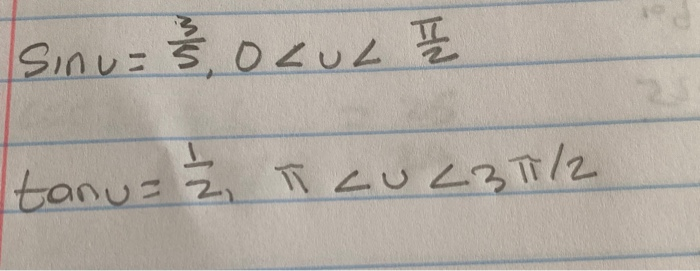 sinu = 3/5, 0 < u < π/2
tanu = 1/2, π < u < 3π/2